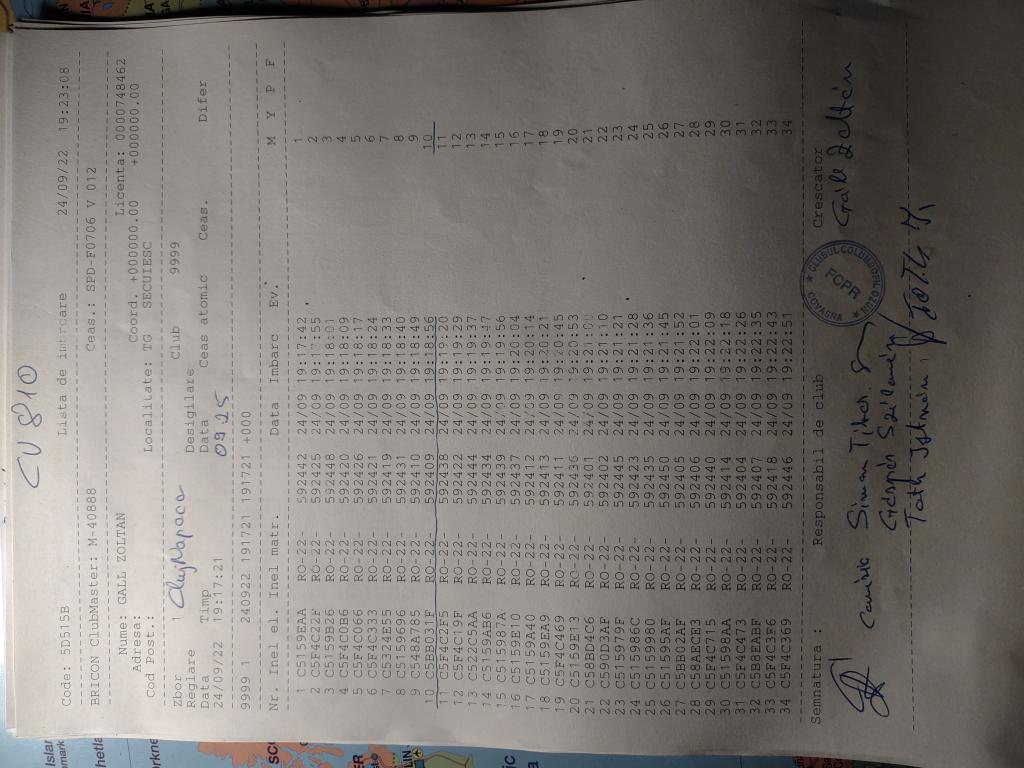 CV 810
Code: 5D515B Lista de imbarcare 24/09/22 19:23:08
BRICON ClubMaster: M 40888 Ceas.: SPD F0706 V 012
Nume: GALL ZOLTAN Licenta: 0000748462
Adresa: Coord. +000000.00 +000000.00
Cod Post.: Localitate: TG SECUIESC
Zbor 1 ClujNapoca Club 9999
Reglare Desigilare
Data Timp Data Ceas atomic Ceas. Difer
24/09/22 19:17:21 0925
9999 1 240922 191721 191721 +000
Nr. Inel el. Inel matr. Data Imbarc Ev. M Y P F
1 C5159EAA RO-22- 592442 24/09 19:17:42 1
2 C5F4C22F RO-22- 592425 24/09 19:17:55 2
3 C5159B26 RO-22- 592448 24/09 19:18:01 3
4 C5F4C0B6 RO-22- 592420 24/09 19:18:09 4
5 C5F4C066 RO-22- 592426 24/09 19:18:17 5
6 C5F4C333 RO-22- 592421 24/09 19:18:24 6
7 C5324E55 RO-22- 592419 24/09 19:18:33 7
8 C5159696 RO-22- 592431 24/09 19:18:40 8
9 C548A785 RO-22- 592410 24/09 19:18:49 9
10 C2BBD31F RO-22- 592409 24/09 19:18:56 10
11 C5F4C2F5 RO-22- 592438 24/09 19:19:20 11
12 C5F4C19F RO-22- 592422 24/09 19:19:29 12
13 C522C5AA RO-22- 592444 24/09 19:19:37 13
14 C5159AB6 RO-22- 592434 24/09 19:19:47 14
15 C515987A RO-22- 592439 24/09 19:19:56 15
16 C5159E10 RO-22- 592437 24/09 19:20:04 16
17 C5159A40 RO-22- 592412 24/09 19:20:14 17
18 C5159EA9 RO-22- 592413 24/09 19:20:21 18
19 C5F4C469 RO-22- 592411 24/09 19:20:45 19
20 C5159E13 RO-22- 592436 24/09 19:20:53 20
21 C58BD4C6 RO-22- 592401 24/09 19:21:00 21
22 C590D3AF RO-22- 592402 24/09 19:21:10 22
23 C515979F RO-22- 592445 24/09 19:21:21 23
24 C515986C RO-22- 592423 24/09 19:21:28 24
25 C5159980 RO-22- 592435 24/09 19:21:36 25
26 C5159AF5 RO-22- 592450 24/09 19:21:45 26
27 C5BB02AF RO-22- 592405 24/09 19:21:52 27
28 C58AECE3 RO-22- 592406 24/09 19:22:01 28
29 C5F4C715 RO-22- 592440 24/09 19:22:09 29
30 C51598AA RO-22- 592414 24/09 19:22:18 30
31 C5F4C473 RO-22- 592404 24/09 19:22:26 31
32 C5B8EABF RO-22- 592407 24/09 19:22:35 32
33 C5F4C3F6 RO-22- 592418 24/09 19:22:43 33
34 C5F4C369 RO-22- 592446 24/09 19:22:51 34
Semnatura : Responsabil de club Crescator
Simon Tibor Gáll Zoltán
CLUBUL COLUMBOFIL NOZO COVASNA FCPR
Gáspár Szilamér
Toth Istvan